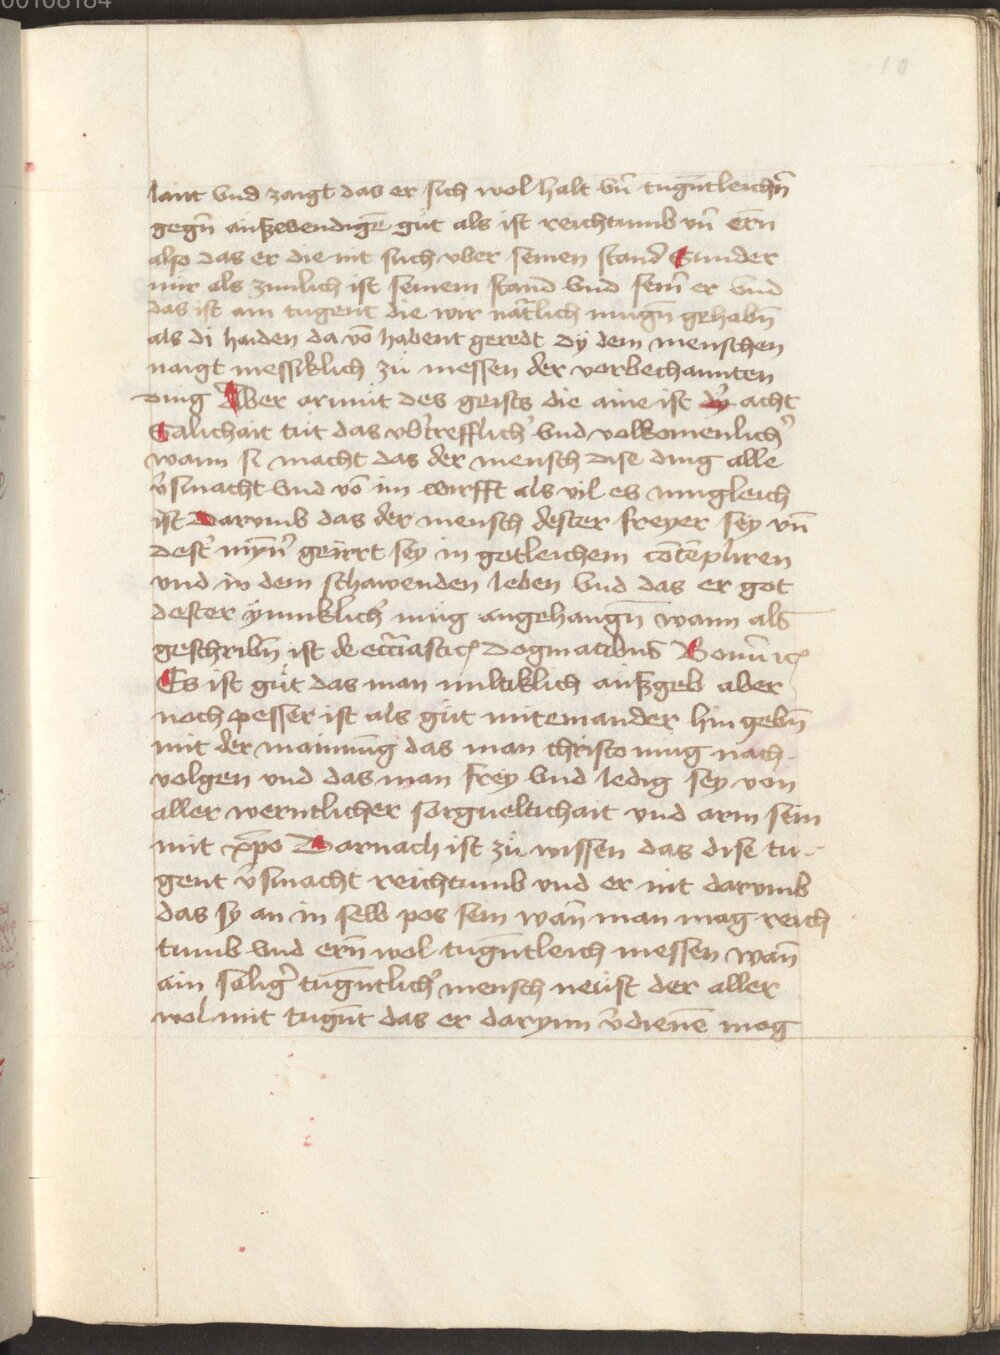 00108184
10
lait vnd zaigt das er sich wol halt vn̄ tugūtleichn̄
gegn̄ auszwendigē gut als ist reichtumb vn̄ ern̄
also das er die nit such vber seinen stand Sunder
nur als zimlich ist seinem stand vnd sein̄ er vnd
das ist ain tugent die wir natr̄lich mugn̄ gehabn̄
als di haiden da vō habent geredt dy dem menschen
naigt messiklich zu messen der vorbechannten
ding Aber armut des geists die aine ist dy acht
Salichait tut das vbtrefflich vnd volkomenlich
wann si macht das der mensch dise ding alle
v̄smacht vnd vō im wirfft als vil es mugleich
ist Darumb das der mensch dester freyer sey vn̄
dest myn̄ geirrt sey in gotleichem cōtēpliren
vnd in dem schawenden leben vnd das er got
dester ynniklich mug angehangn̄ wann als
geschribn̄ ist de ecc̄iastic dogmatibus Bonū ꝛc
Es ist gut das man miltiklich auszgeb aber
noch pesser ist als gut miteinander hin gebn̄
mit der mainūng das man christo mug nach
volgen vnd das man frey vnd ledig sey von
aller werntlicher sorgueltichait vnd arm sein
mit xp̄o Darnach ist zu wissen das dise tu-
gent v̄smacht reichtumb vnd er nit darumb
das sy an in selb pos sein wan̄ man mag reich
tumb vnd ern̄ wol tugūtleich messen wan̄
ain salig tugūtlich mensch neust der aller
wol mit tugūt das er darynn v̄dienē mag